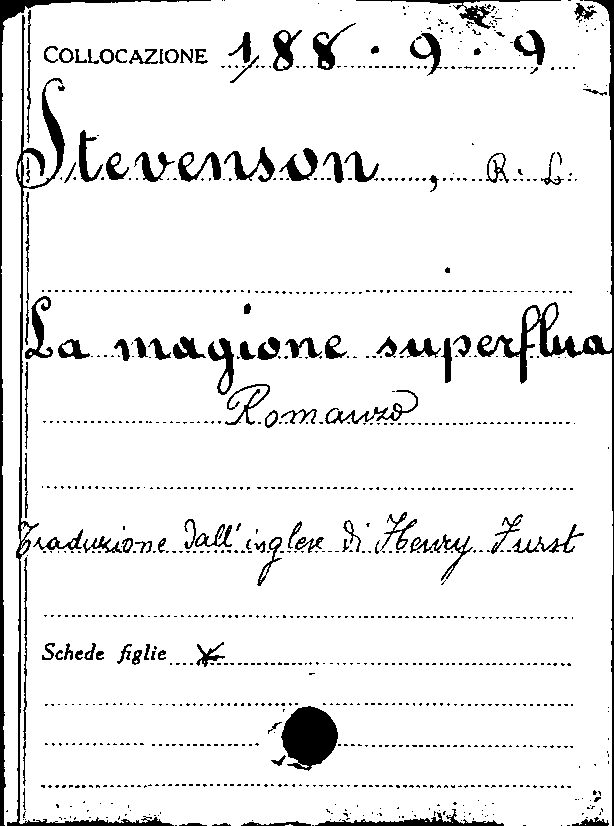 COLLOCAZIONE 188.9.9
Stevenson, R. L.
La magione superflua
Romanzo
Traduzione dall'inglese di Henry Furst
Schede figlie